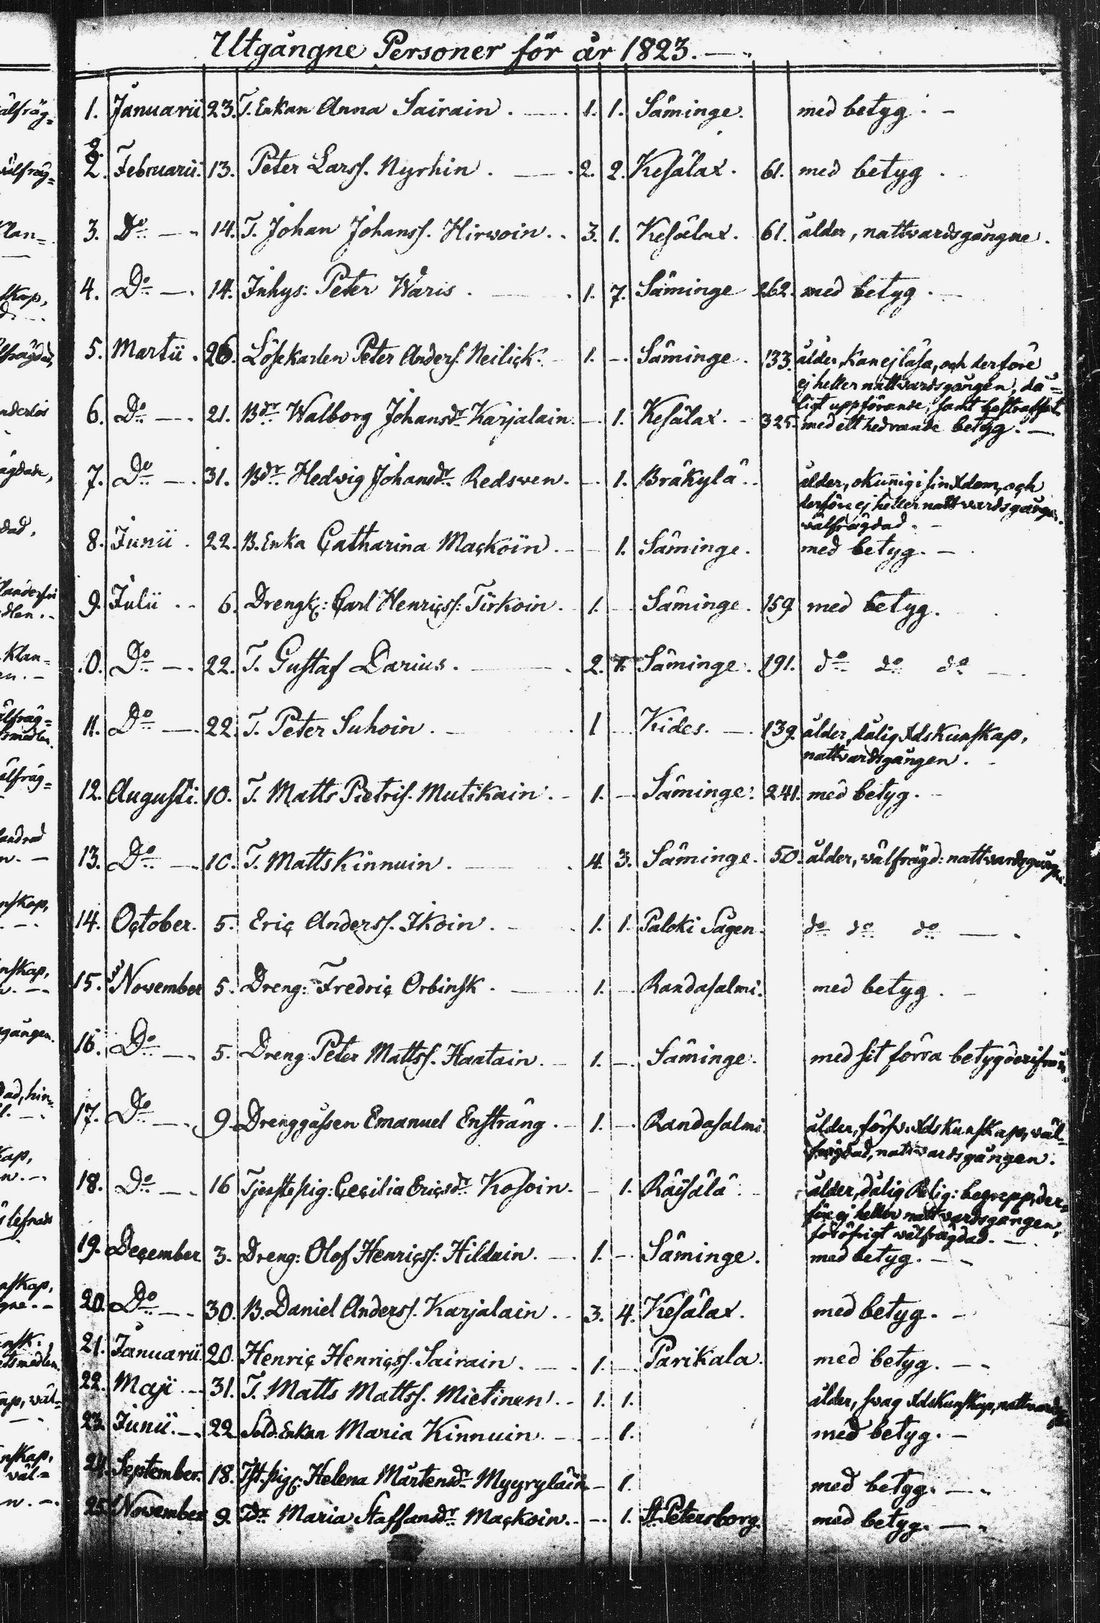 Utgångne Personer för år 1823.
1. Januarii 23. T. Enkan Anna Sairain. 1. 1. Säminge. med betyg.
2. Februarii 13. Peter Larss. Nyrhin. 2. 2. Kesälax. 61. med betyg.
3. Do 14. T. Johan Johanss. Hirwoin. 3. 1. Kesälax. 61. ålder, nattvardsgångne.
4. Do 14. Inhys: Peter Waris. 1. 7. Säminge 262. med betyg.
5. Martii. 26. Löskarlen Peter Anders. Neilick. 1. Säminge. 133. ålder, kan ej läsa, och derföre
ej heller nattvardsgången, då-
ligt uppförande, samt
6. Do 21. Bdr Walborg Johansdr Karjalain 1. Kesälax. 325. med ett hedrande betyg.
7. Do 31. Bdr Hedwig Johansdr Redsven. 1. Bräkylä. ålder, okunnig i sin Xdom, och
derföre ej heller nattvardsgången,
välfrägdad.
8. Junii. 22. B. Enka Catharina Mackoin. 1. Säminge. med betyg.
9. Julii 6. Drengk: Carl Henricss: Tirkoin. 1. Säminge. 159. med betyg.
10. Do 22. T. Gustaf Darius. 2. Säminge. 191. do do do
11. Do 22. T. Peter Suhoin. 1 Kides. 139. ålder, dålig Xdskunskap,
nattvardsgången.
12. Augusti. 10. T. Matts Pietris. Mutikain. 1. Säminge. 241. med betyg.
13. Do 10. T. Matts Kinnuin. 4. 3. Säminge. 50. ålder, välfrägd: nattvardsgång
14. October. 5. Eric Anderss. Ikoin. 1. 1. Paloki Sågen. do do do
15. November 5. Dreng: Fredric Orbinsk. 1. Randasalmi. med betyg.
16. Do 5. Dreng Peter Mattss. Haatain. 1. Säminge. med sit förra betyg
17. Do 9. Drenggåssen Emanuel Enstrång. 1. Randasalmi ålder, försv. Xdskunskap, väl-
frägdad, nattvardsgången.
18. Do 16 Tjenstepig: Cecilia Ericsdr Kosoin. 1. Räisälä. ålder, dålig Relig: begrepp, der-
före ej heller nattvardsgången,
för öfrigt välfrägdad.
19. December 3. Dreng: Olof Henricss: Hildain. 1. Säminge. med betyg.
20. Do 30. B. Daniel Anderss. Karjalain. 3. 4. Kesälax. med betyg.
21. Januarii 20. Henric Henricss. Sairain. 1. Parikala. med betyg.
22. Maji 31. T. Matts Mattss. Mietinen. 1. 1. ålder, svag Xdskunskap, nattvards
23. Junii. 22 Sold. Enkan Maria Kinnuin. 1. med betyg.
24. September. 18. Tjst. pig: Helena Mårtensdr Myyryläin 1. med betyg.
25. November 9. Dr Maria Staffansdr Mackoin. 1. St. Petersborg. med betyg.